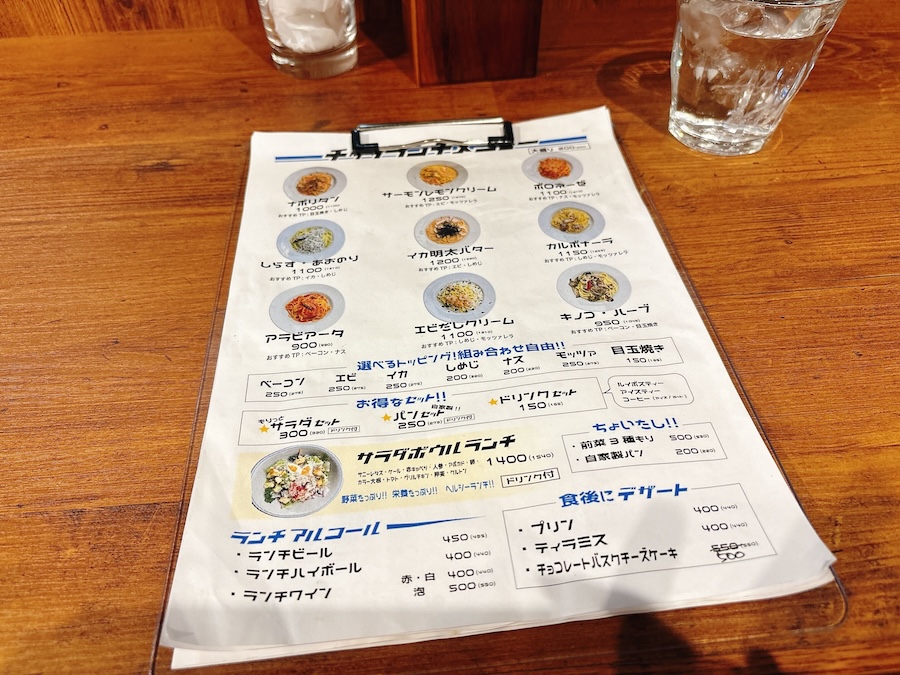 大盛り 200
ナポリタン
1000
おすすめTP：目玉焼き・しめじ
サーモンレモンクリーム
1250
おすすめTP：エビ・モッツァレラ
ボロネーゼ
1100
おすすめTP：ナス・モッツァレラ
しらす・あおのり
1100
おすすめTP：イカ・しめじ
イカ明太バター
1200
おすすめTP：エビ・しめじ
カルボナーラ
1150
おすすめTP：しめじ・モッツァレラ
アラビアータ
900
おすすめTP：ベーコン・ナス
エビだしクリーム
1100
おすすめTP：しめじ・モッツァレラ
キノコ・ハーブ
950
おすすめTP：ベーコン・目玉焼き
選べるトッピング!組み合わせ自由!!
ベーコン 250 エビ 250 イカ 250 しめじ 200 ナス 200 モッツァ 250 目玉焼き 150
お得なセット!!
もりっと
サラダセット 300 ドリンク付
自家製!!
パンセット 250 ドリンク付
ドリンクセット 150
ルイボスティー
アイスティー
コーヒー
サラダボウルランチ
1400 (1540)
サニーレタス・ケール・赤キャベツ・人参・アボカド・卵・
カラー大根・トマト・グリルチキン・押麦・クルトン
ドリンク付
野菜たっぷり!! 栄養たっぷり!! ヘルシーランチ!!
ちょいたし!!
・前菜3種もり 500 (550)
・自家製パン 200 (220)
ランチアルコール
・ランチビール 450 (495)
・ランチハイボール 400 (440)
・ランチワイン 赤・白 400 (440)
泡 500 (550)
食後にデザート
・プリン 400 (440)
・ティラミス 400 (440)
・チョコレートバスクチーズケーキ 550
500